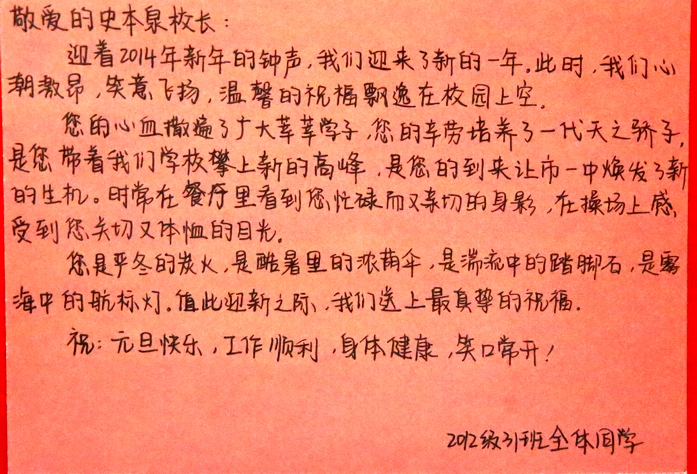 敬爱的史本泉校长：
迎着2014年新年的钟声，我们迎来了新的一年。此时，我们心
潮激昂，笑意飞扬，温馨的祝福飘逸在校园上空。
您的心血撒遍了广大莘莘学子，您的辛劳培养了一代天之骄子，
是您带着我们学校攀上新的高峰，是您的到来让市一中焕发了新
的生机。时常在餐厅里看到您忙碌而又亲切的身影，在操场上感
受到您关切又体恤的目光。
您是严冬的炭火，是酷暑里的浓荫伞，是湍流中的踏脚石，是雾
海中的航标灯。值此迎新之际，我们送上最真挚的祝福。
祝：元旦快乐，工作顺利，身体健康，笑口常开！
2012级31班全体同学